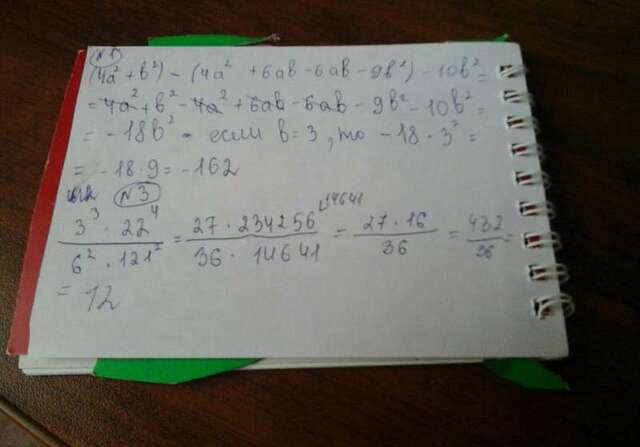 N1
(4a² + b²) - (4a² + 6ab - 6ab - 9b²) - 10b² =
= 4a² + b² - 4a² + 6ab - 6ab - 9b² - 10b² =
= -18b² - если b = 3, то -18 · 3² =
= -18 · 9 = -162
N3
3³ · 22⁴ / 6² · 121² = 27 · 234256 / 36 · 14641 = 27 · 16 / 36 = 432 / 36 =
14641
= 12